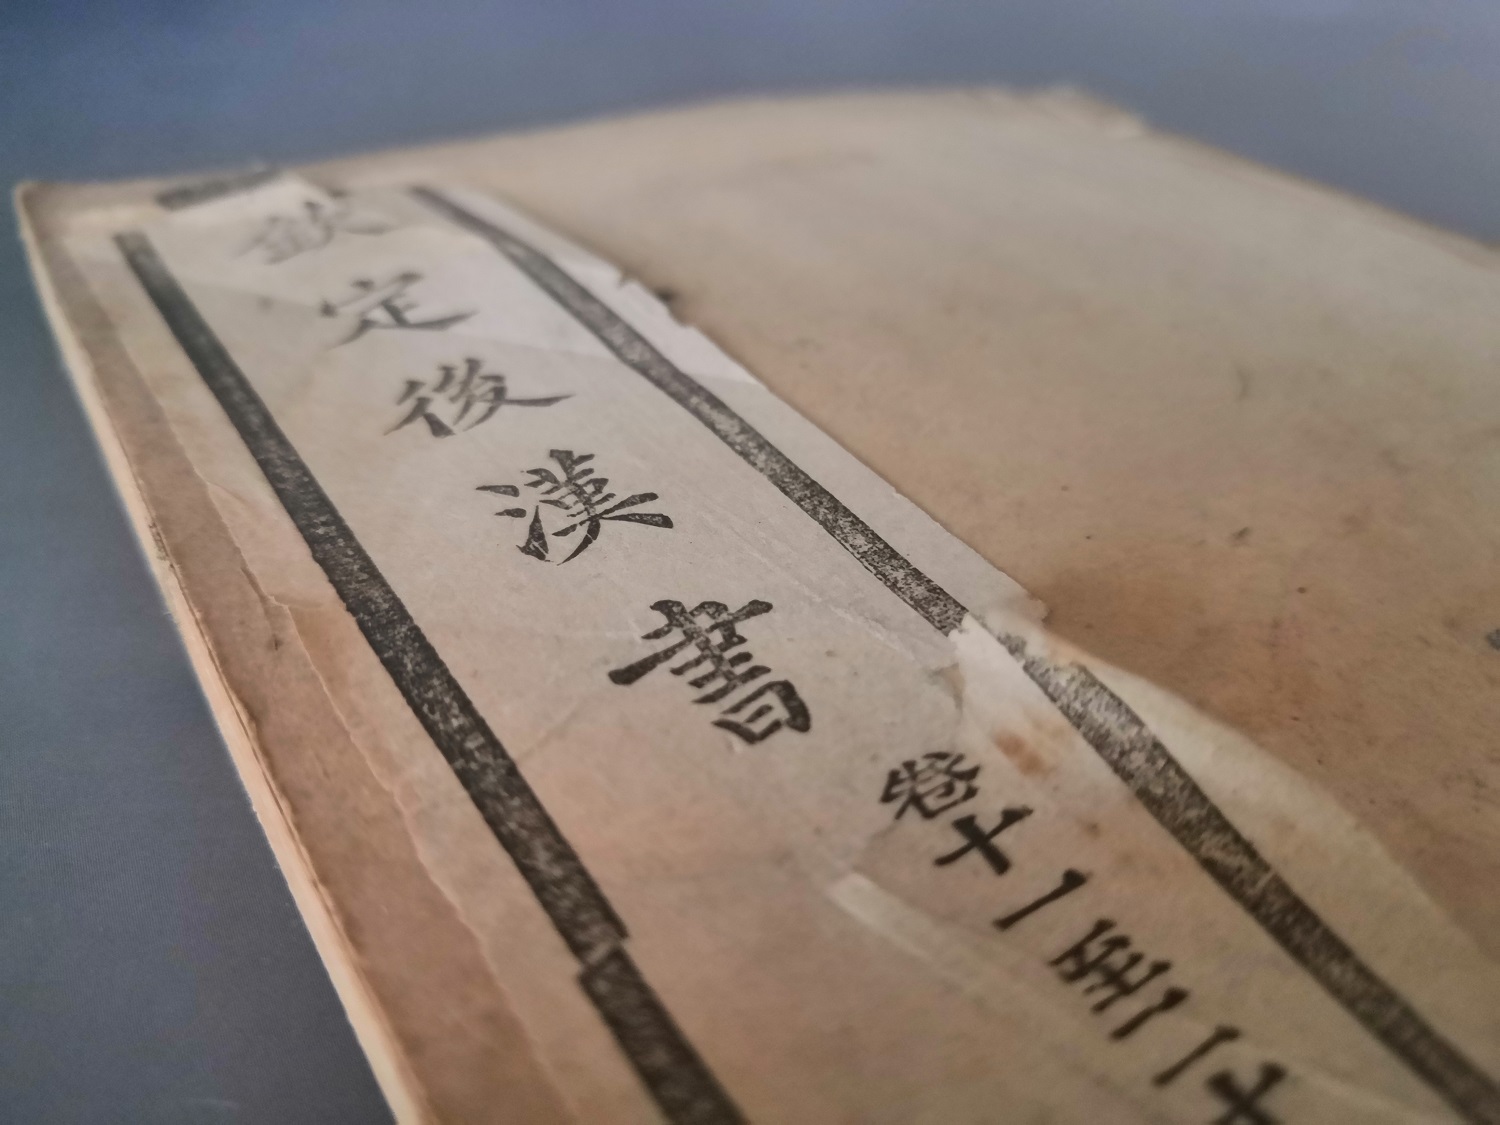 欽定後漢書 卷十一至二十